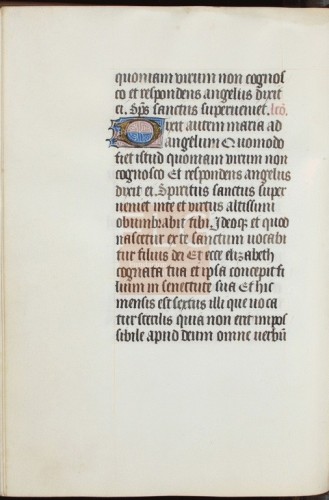 quoniam virum non cognos
co et respondens angelus dixit
ei. Sp̄s sanctus superueniet. lcō.
Dixit autem maria ad
angelum Quomodo
fiet istud quoniam virum non
cognosco Et respondens angelus
dixit ei Spiritus sanctus super
ueniet in te et virtus altissimi
obumbrabit tibi. Ideoqꝫ et quod
nascetur ex te sanctum uocabi
tur filius dei Et ecce elizabeth
cognata tua et ipsa concepit fi
lium in senectute sua Et hic
mensis est sextus illi que uoca
tur sterilis quia non erit impos
sibile apud deum omne verbū